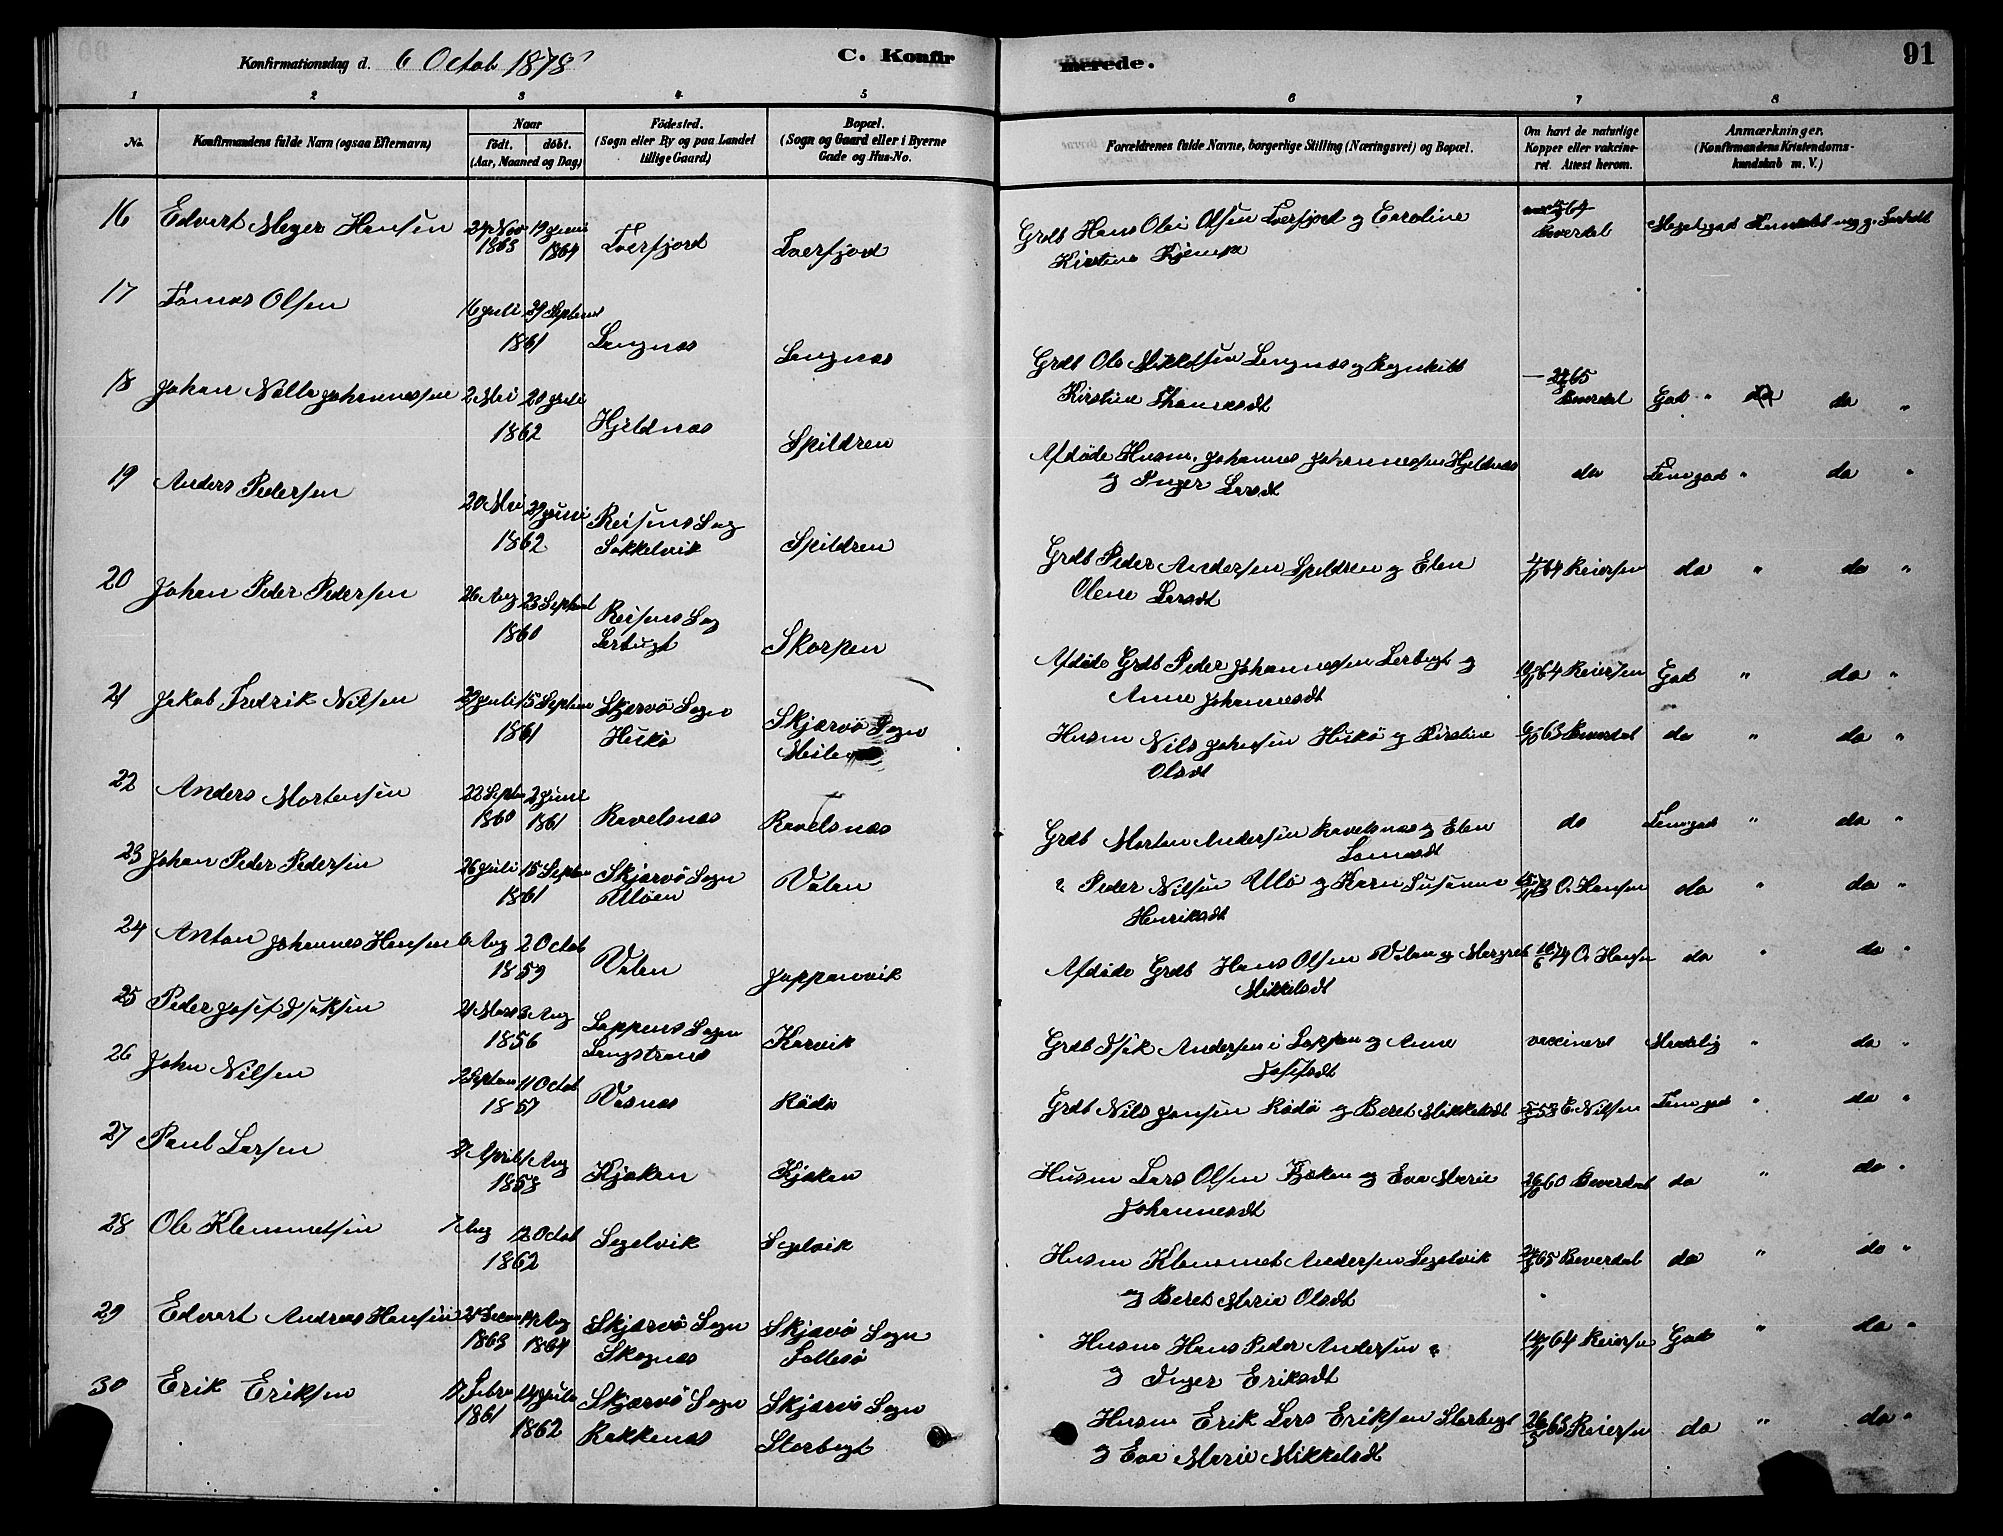 Konfirmationsdag d. 6 Octob 1878
C. Konfirmerede.
91
1 2 3 4 5 6 7 8
No.
Konfirmandens fulde Navn (ogsaa Efternavn)
Naar
födt. döbt.
(Aar, Maaned og Dag)
Födested.
(Sogn eller By og paa Landet
tillige Gaard)
Bopæl.
(Sogn og Gaard eller i Byerne
Gade og Hus-No.
Forældrenes fulde Navne, borgerlige Stilling (Næringsvei) og Bopæl.
Om havt de naturlige
Kopper eller vakcine-
ret. Attest herom.
Anmærkninger.
(Konfirmandens Kristendoms-
kundskab m. V.)
16 Edvert Meyer Hansen 24 Nov 1863 19 Juni 1864 Tverfjord Tverfjord
Grdb Hans Olai Olsen Tverfjord og Caroline
Kirstine
Beverdal
Meget god Kundskab
17 Tomas Olsen 16 Juli 29 Septem 1861 Langnæs Langnæs
Grdb Ole Mikkelsen Langnæs og Ragnhild
Kirstine Thomasdt
65
Beverdal God " do do "
18 Johan Nille Johannessen 2 Mai 20 Juli 1862 Hjeldnæs Spildren
Afdöde Husm. Johannes Johannessen Hjeldnæs
og Inger Larsdt
do Temgod " do "
19 Anders Pedersen 20 Mai 29 Juni 1862 Reisens Sog
Sokkelvik Spildren
Grdb Peder Andersen Spildren og Elen
Olene Larsdt
64 Reiersen do " do "
20 Johan Peder Pedersen 26 Aug 23 Septemb 1860 Reisens Sog
Lerbugt Skorpen
Afdöde Grdb Peder Johannessen Lerbugt og
Anne Johannesdt
64 Reiersen God " do "
21 Jakob Fredrik Nilsen 29 Juli 15 Septem 1861 Skjervö Sogn
Hukö Skjærvö Sogn
Husm Nils Johnsen Hukö og Kirstine
Olsdt
63 Beverdal do " do "
22 Anders Mortensen 22 Septem 1860 2 Juni 1861 Ravelsnæs Ravelsnæs
Grdb Morten Andersen Ravelsnæs og Elen
do Temgod " do "
23 Johan Peder Pedersen 26 Juli 15 Septem 1861 Skjærvö Sogn
Ulöen Valen
" Peder Nilsen Ulö og Karn Susanna
Henriksdt
O. Hansen do " do "
24 Anton Johannes Hansen 6 Aug 2 Octob 1859 Valen Joppanvik
Afdöde Grdb Hans Olsen Valen og Margret
Mikkelsdt
74 O. Hansen do " do "
25 Peder Josef Isaksen 21 Mars 3 Aug 1856 Loppens Sogn
Langstrand Karvik
Grdb Isak Andersen i Loppen og Anne
Josefsdt
vaccineret Maadelig " do "
26 John Nilsen 7 Septem 11 Octob 1857 Vasnæs Rödö
Grdb Nils Jansen Rödö og Beret Mikkelsdt
58 E. Nilsen Temgod " do "
27 Paul Larsen April Aug 1858 Kjöken Kjöken
Husm Lars Olsen Kjöken og Eva Marie
Johannesdt
60 Beverdal do " do "
28 Ole Klemmetsen 7 Aug 12 Octob 1862 Segelvik Segelvik
Husm Klemmet Andersen Segelvik
og Beret Marie Olsdt
65 Beverdal do " do "
29 Edvart Andreas Hansen 21 Decem 1863 14 Aug 1864 Skjærvö Sogn
Skognæs Skjævö Sogn
Follesö
Husm Hans Peder Andersen "
og Inger Eriksdt
64 Reiersen God " do "
30 Erik Eriksen 17 Febru 1861 14 Juli 1862 Skjærvö Sogn
Rakkenæs Skjærvö Sogn
Storbugt
Husm Erik Lars Eriksen Storbugt
og Eva Marie Mikkelsdt
26 63 Reiersen do " do "